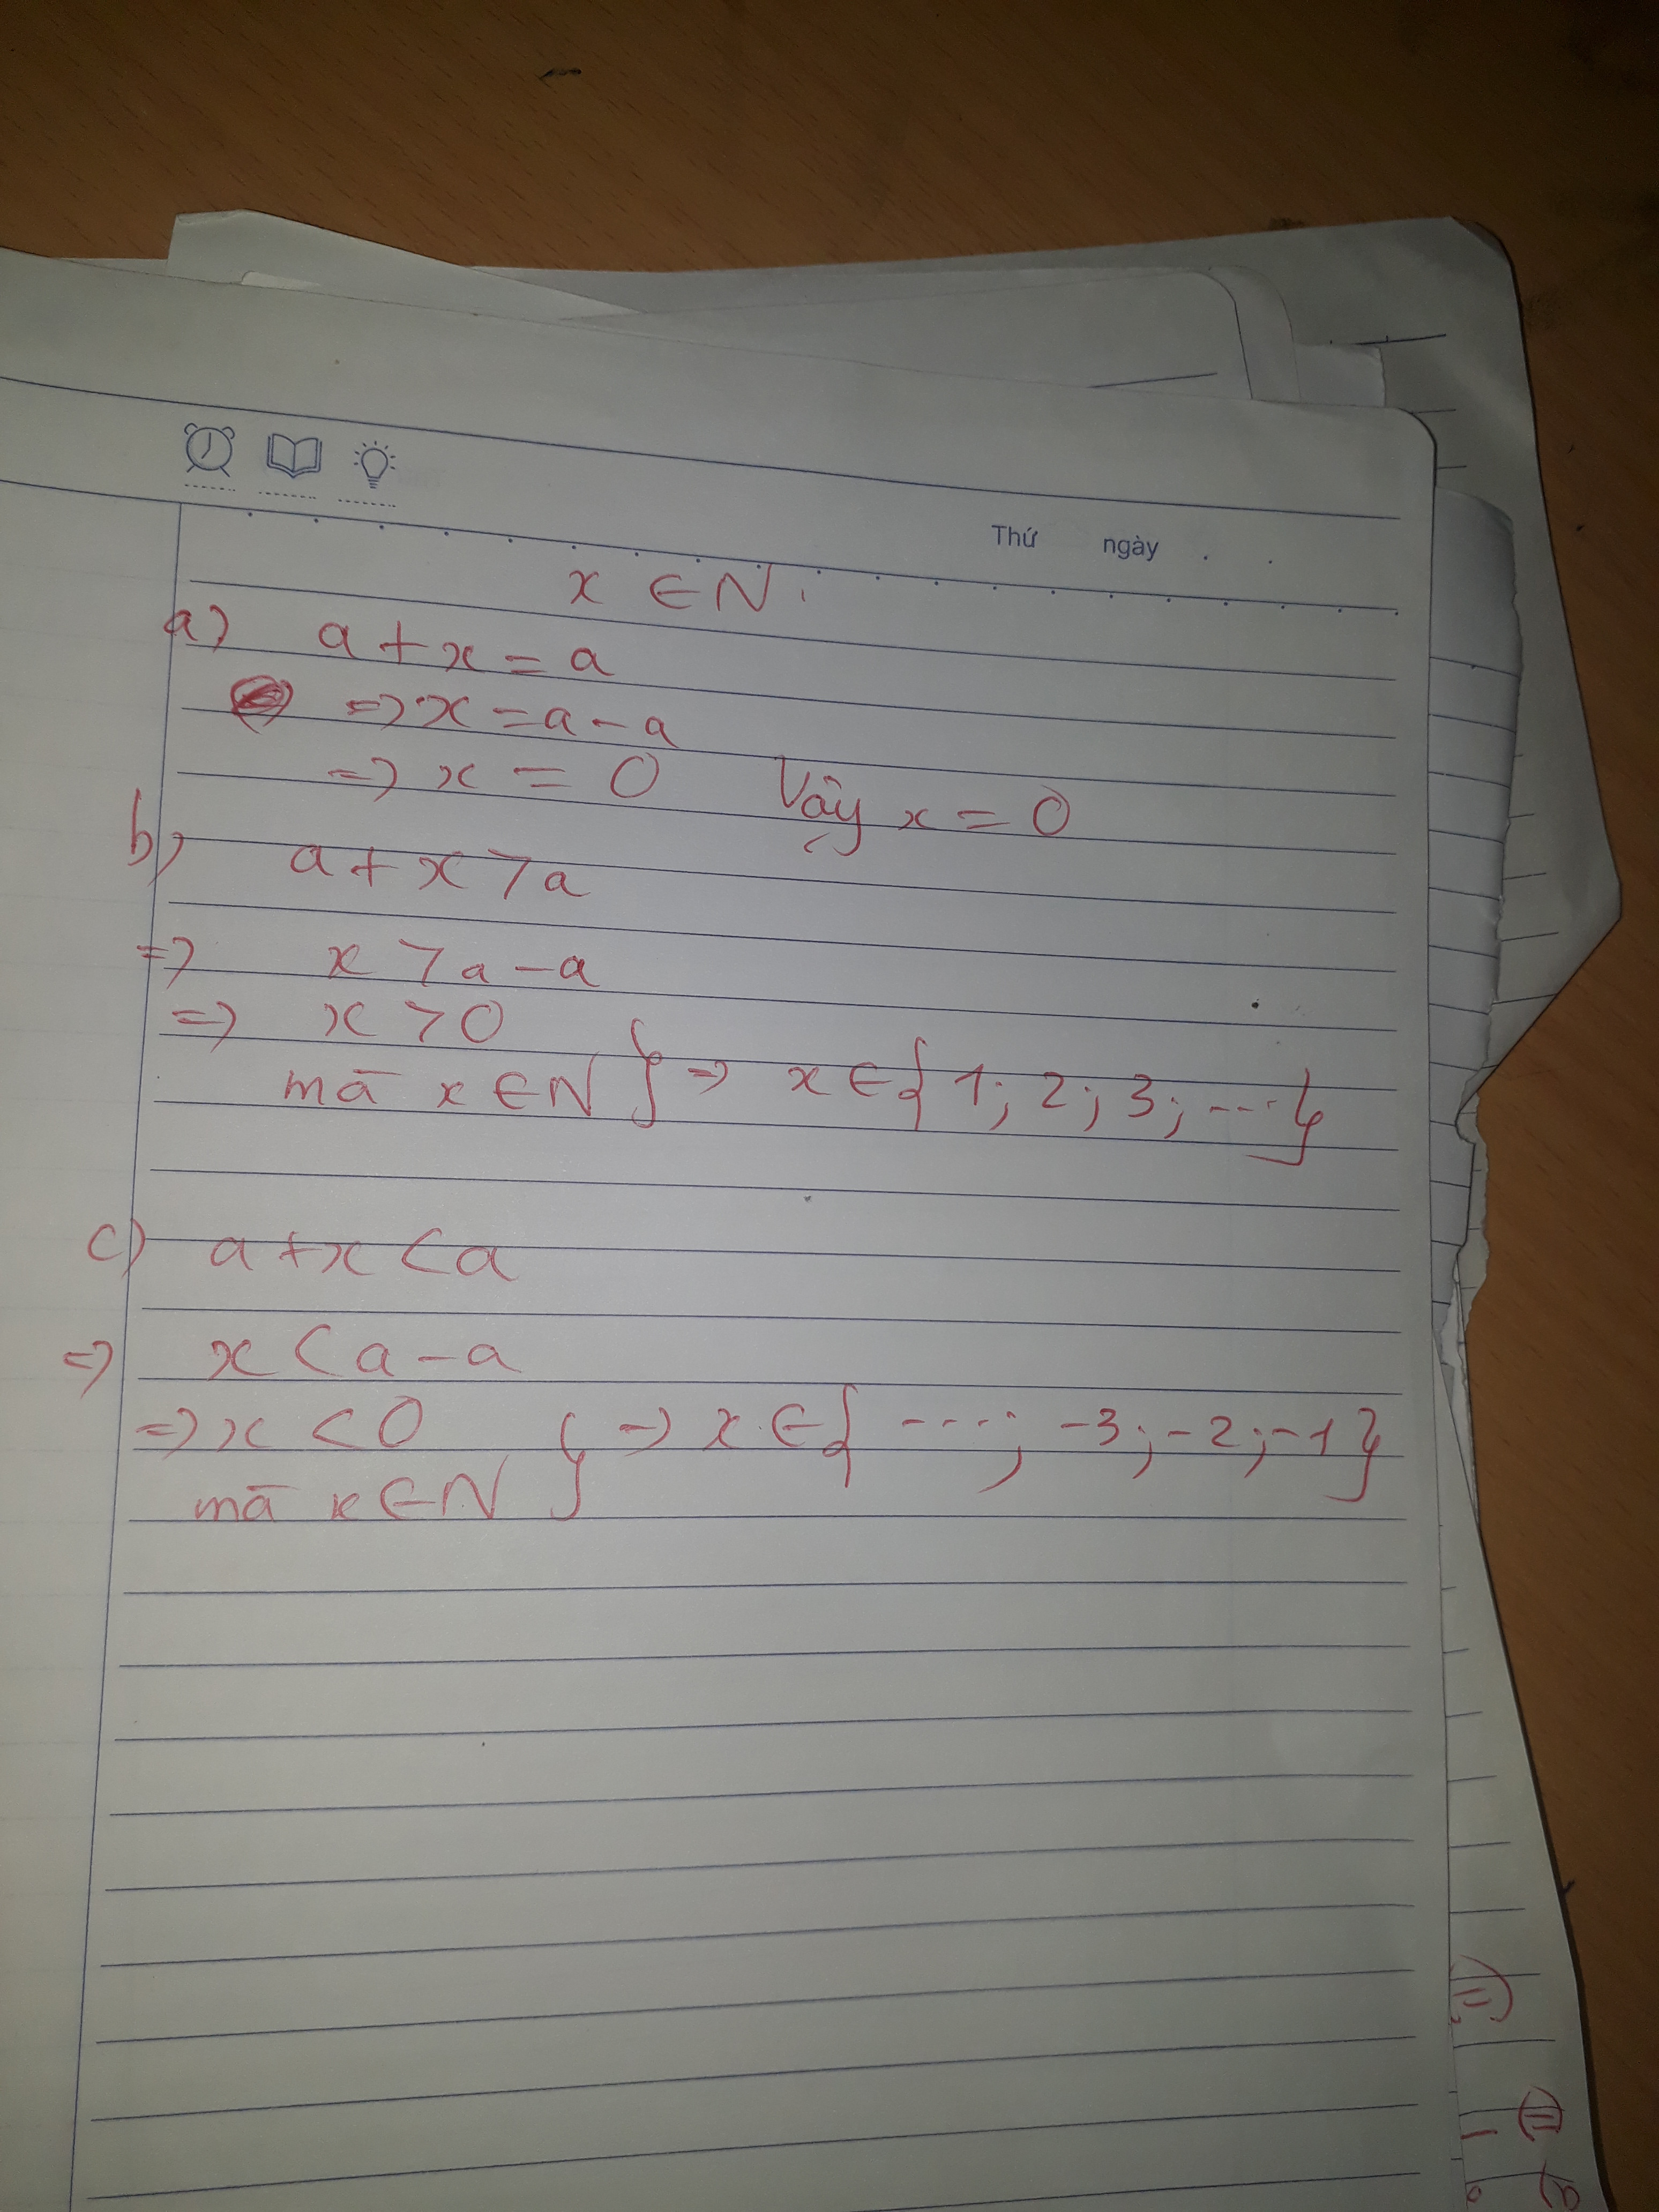 Thứ ngày . .
x ∈ N.
a) a + x = a
=> x = a - a
=> x = 0 Vậy x = 0
b) a + x > a
=> x > a - a
=> x > 0
mà x ∈ N } => x ∈ { 1; 2; 3; ... }
c) a + x < a
=> x < a - a
=> x < 0 } => x ∈ { ....; -3; -2; -1 }
mà x ∈ N